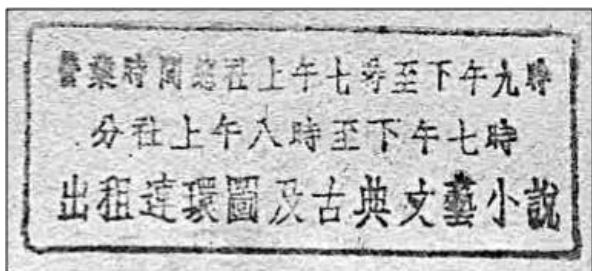 營業時間總社上午七時至下午九時
分社上午八時至下午七時
出租連環圖及古典文藝小說